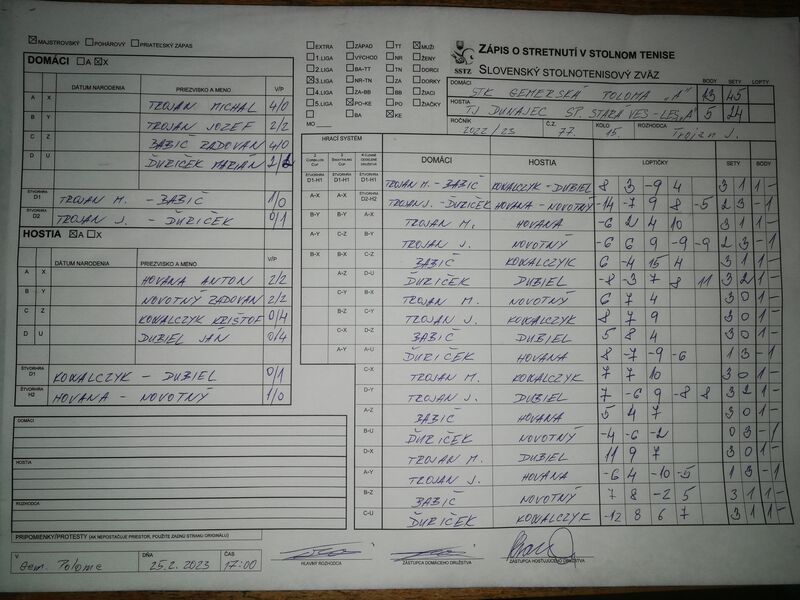 ☒ MAJSTROVSKÝ ☐ POHÁROVÝ ☐ PRIATEĽSKÝ ZÁPAS
DOMÁCI ☐A ☒X
DÁTUM NARODENIA PRIEZVISKO A MENO V/P
A X TROJAN MICHAL 4/0
B Y TROJAN JOZEF 2/2
C Z BABIČ RADOVAN 4/0
D U ĎURIČEK MARIAN 2/2
ŠTVORHRA D1 TROJAN M. - BABIČ 1/0
ŠTVORHRA D2 TROJAN J. - ĎURIČEK 0/1
HOSTIA ☒A ☐X
DÁTUM NARODENIA PRIEZVISKO A MENO V/P
A X HOVANA ANTON 2/2
B Y NOVOTNÝ RADOVAN 2/2
C Z KOWALCZYK KRIŠTOF 0/4
D U DUBIEL JÁN 0/4
ŠTVORHRA D1 KOWALCZYK - DUBIEL 0/1
ŠTVORHRA H2 HOVANA - NOVOTNÝ 1/0
DOMÁCI
HOSTIA
ROZHODCA
PRIPOMIENKY/PROTESTY (AK NEPOSTAČUJE PRIESTOR, POUŽITE ZADNÚ STRANU ORIGINÁLU)
V Gem. Poloma DŇA 25.2.2023 ČAS 17:00
HLAVNÝ ROZHODCA
ZÁSTUPCA DOMÁCEHO DRUŽSTVA
ZÁSTUPCA HOSŤUJÚCEHO DRUŽSTVA
☐ EXTRA ☐ ZÁPAD ☐ TT ☒ MUŽI
☐ 1.LIGA ☐ VÝCHOD ☐ NR ☐ ŽENY
☐ 2.LIGA ☐ BA-TT ☐ TN ☐ DORCI
☒ 3.LIGA ☐ NR-TN ☐ ZA ☐ DORKY
☐ 4.LIGA ☐ ZA-BB ☐ BB ☐ ŽIACI
☐ 5.LIGA ☒ PO-KE ☐ PO ☐ ŽIAČKY
☐ ☐ BA ☒ KE
MO
SSTZ
ZÁPIS O STRETNUTÍ V STOLNOM TENISE
SLOVENSKÝ STOLNOTENISOVÝ ZVÄZ
BODY SETY LOPTY
DOMÁCI STK GEMERSKÁ POLOMA "A" 13 45
HOSTIA TJ DUNAJEC SP. STARÁ VES - LES. "A" 5 24
ROČNÍK 2022/23 Č.Z. 77. KOLO 15. ROZHODCA Trojan J.
HRACÍ SYSTÉM
DOMÁCI HOSTIA LOPTIČKY SETY BODY
ŠTVORHRA D1-H1 ŠTVORHRA D1-H1 ŠTVORHRA D1-H1 TROJAN M. - BABIČ KOWALCZYK - DUBIEL 8 3 -9 4 3 1 1 -
A-X A-X ŠTVORHRA D2-H2 TROJAN J. - ĎURIČEK HOVANA - NOVOTNÝ -14 -7 9 8 -5 2 3 - 1
B-Y B-Y A-X TROJAN M. HOVANA -6 2 4 10 3 1 1 -
A-Y C-Z B-Y TROJAN J. NOVOTNÝ -6 6 9 -9 -9 2 3 - 1
B-X B-X C-Z BABIČ KOWALCZYK 6 -4 15 4 3 1 1 -
A-Z D-U ĎURIČEK DUBIEL -8 -3 7 8 11 3 2 1 -
C-Y B-X TROJAN M. NOVOTNÝ 6 7 4 3 0 1 -
B-Z C-Y TROJAN J. KOWALCZYK 8 7 9 3 0 1 -
C-X D-Z BABIČ DUBIEL 5 8 4 3 0 1 -
A-Y A-U ĎURIČEK HOVANA 8 -7 -9 -6 1 3 - 1
C-X TROJAN M. KOWALCZYK 7 7 10 3 0 1 -
D-Y TROJAN J. DUBIEL 7 -6 9 -8 8 3 2 1 -
A-Z BABIČ HOVANA 5 4 7 3 0 1 -
B-U ĎURIČEK NOVOTNÝ -4 -6 -2 0 3 - 1
D-X TROJAN M. DUBIEL 11 9 7 3 0 1 -
A-Y TROJAN J. HOVANA -6 4 -10 -5 1 3 - 1
B-Z BABIČ NOVOTNÝ 7 8 -2 5 3 1 1 -
C-U ĎURIČEK KOWALCZYK -12 8 6 7 3 1 1 -